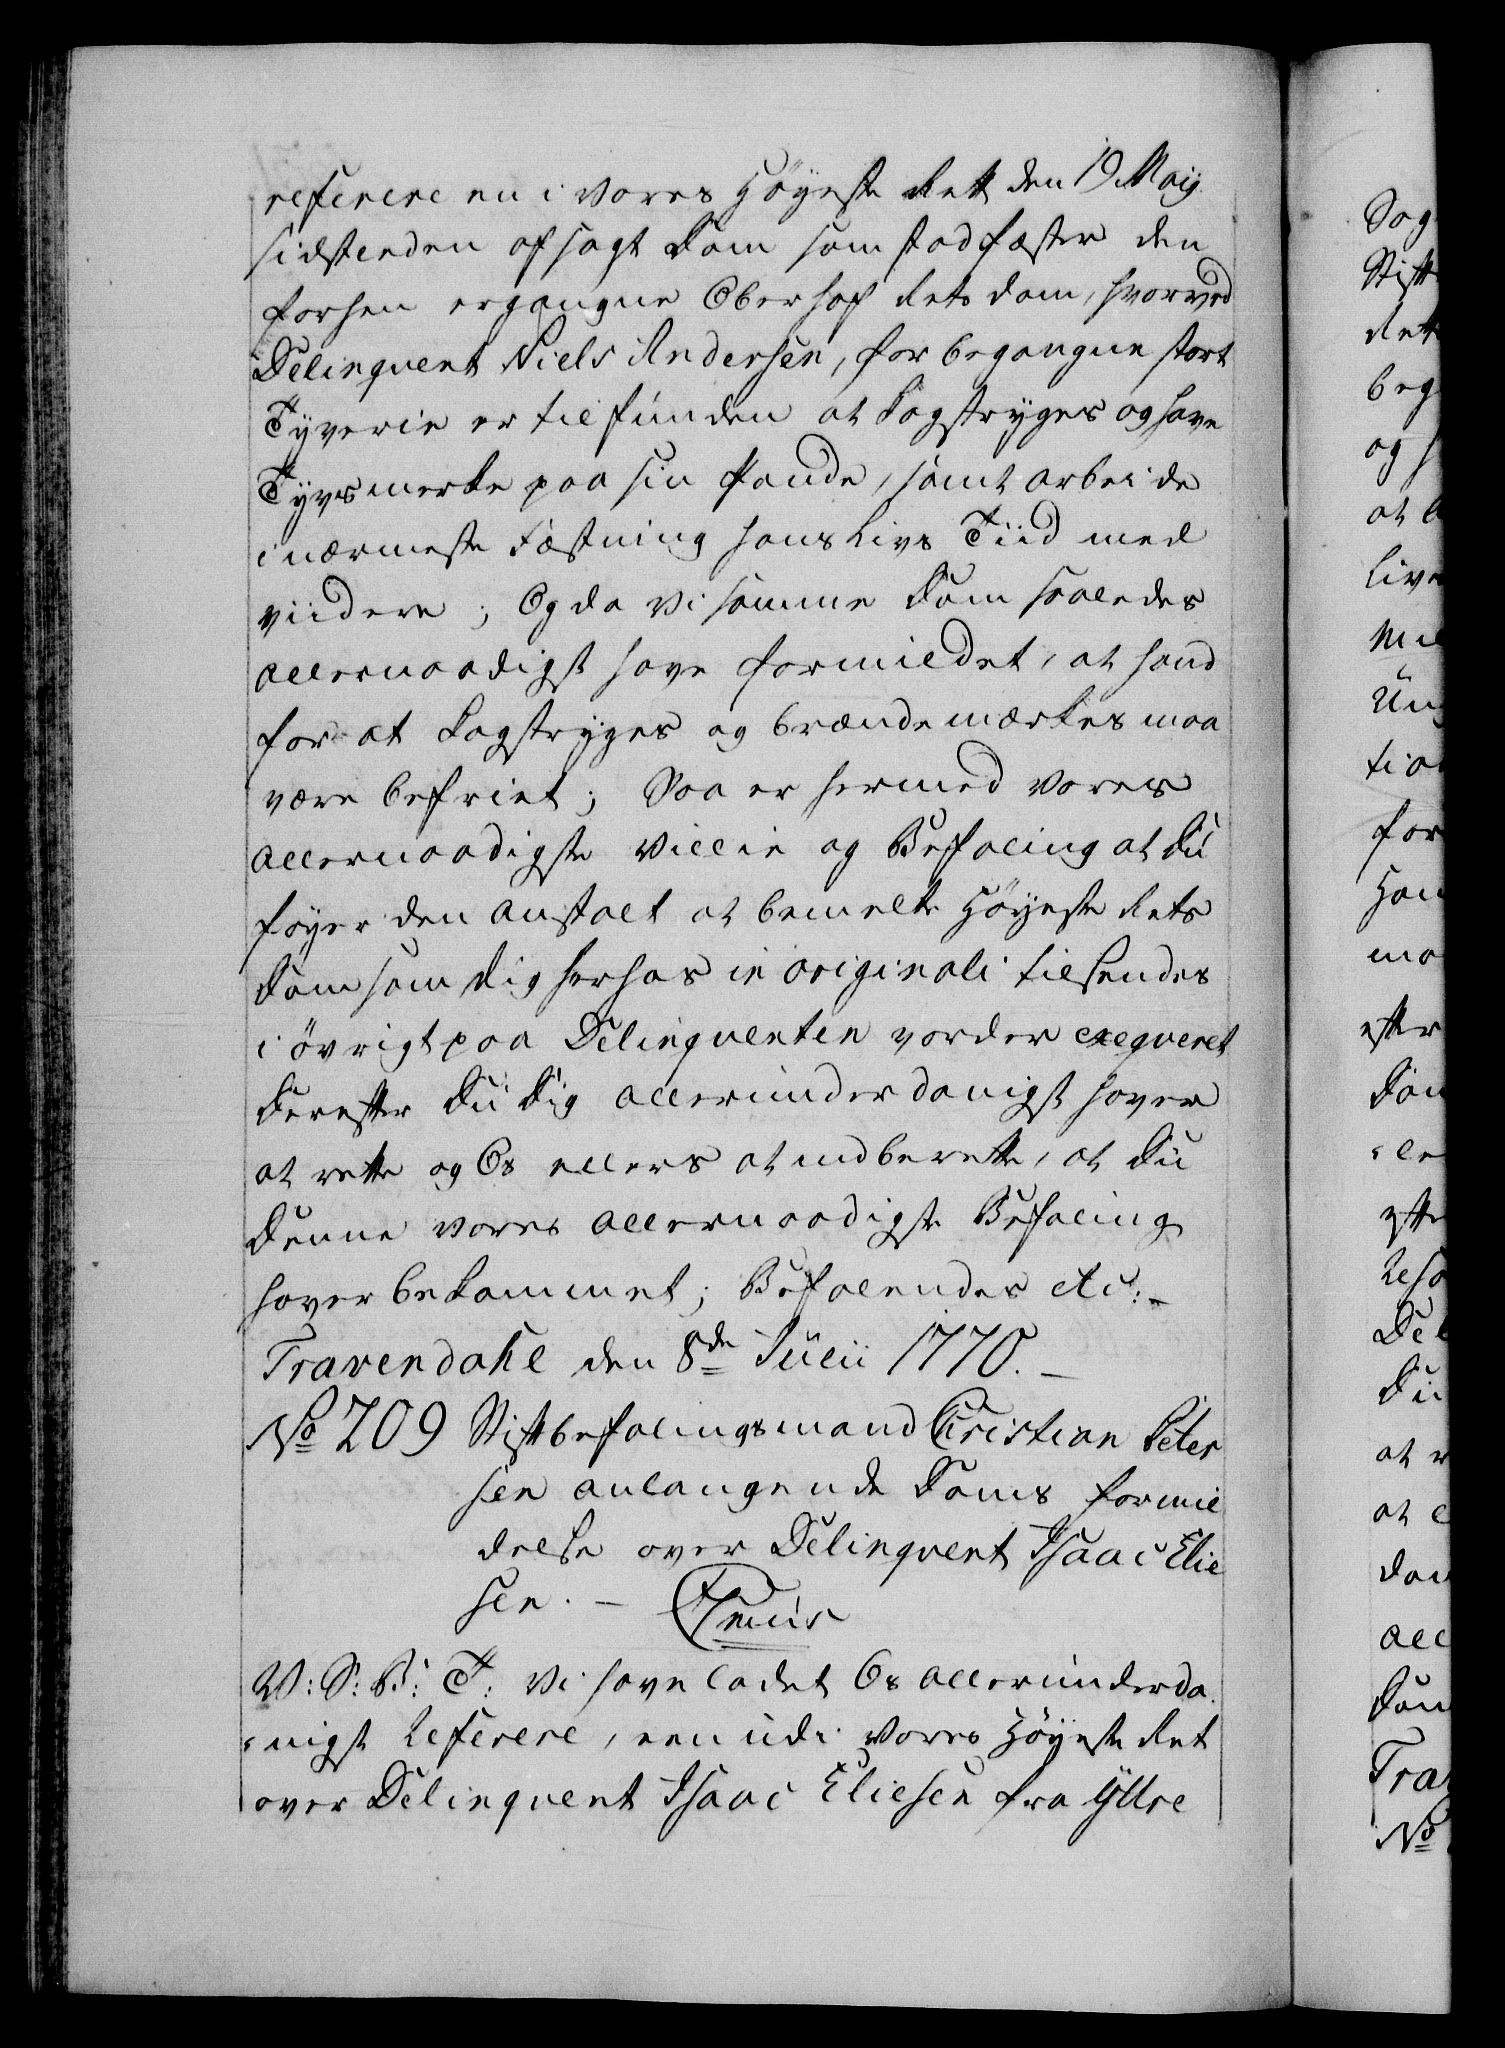 referere en i Vores Høyeste Rett den 19 Maij
sidstleden afsagt Dom som stadfæster den
forhen ergangne Oberhof Rets dom, hvorved
Delinqvent Niels Andersen, for begangne stort
Tyverie er tilfunden at Kagstryges og have
Tyvsmerke paa sin Pande, samt arbeide
i nærmeste Fæstning hans Livs Tiid med
viidere; Og da Vi samme Dom saaledes
allernaadigst have formildet, at hand
for at Kagstryges og brændemærkes maa
være befriet; Saa er hermed Vores
allernaadigste Villie og Befaling at Du
føyer den anstalt at bemelte Høyeste Rets
Dom som Dig herhos in originali tilsendes
i øvrigt paa Delinqventen vorder exeqveret
Derefter Du Dig allerunderdanigst haver
at rette og Os ellers at indberette, at Du
Denne Vores allernaadigste Befaling
haver bekommet; Befalendes etc:–
Travendahl den 8de Julii 1770.–
No 209 Stiftbefalingsmand Christian Peter
sen anlangende Doms formil
delse over Delinqvent Isaac Elie
sen. –
V: S: B: T: Vi have ladet Os allerunderda
nigst Referere, een udi Vores Høyeste Ret
over Delinqvent Isaac Eliesen fra Yttre
Sag
Stift
Rett
beg
og
at
Live
Mil
Un
tia
for
Han
maa
efter
Dom
le
Reso
Del
Du
at
at
dan
all
Dom
Tra
No